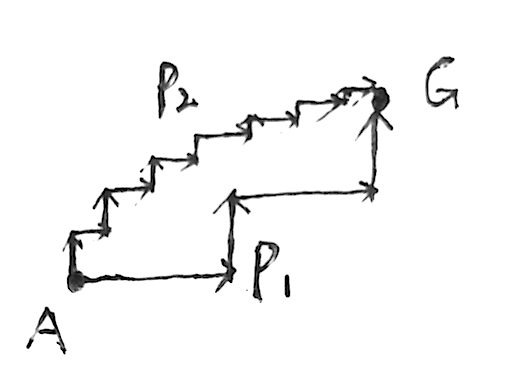 P2
G
P1
A